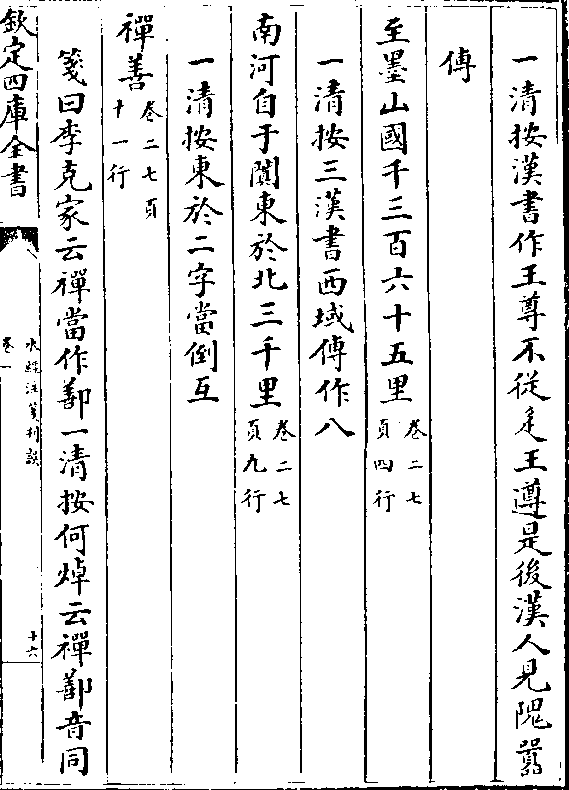 一清按漢書作王尊不從辵王遵是後漢人見隗囂
傳
至墨山國千三百六十五里卷二七頁四行
一清按三漢書西域傳作八
南河自于闐東於北三千里卷二七頁九行
一清按東於二字當倒互
禪善卷二七頁十一行
箋曰李克家云禪當作鄯一清按何焯云禪鄯音同
欽定四庫全書
水經注箋刊誤
卷一
十六